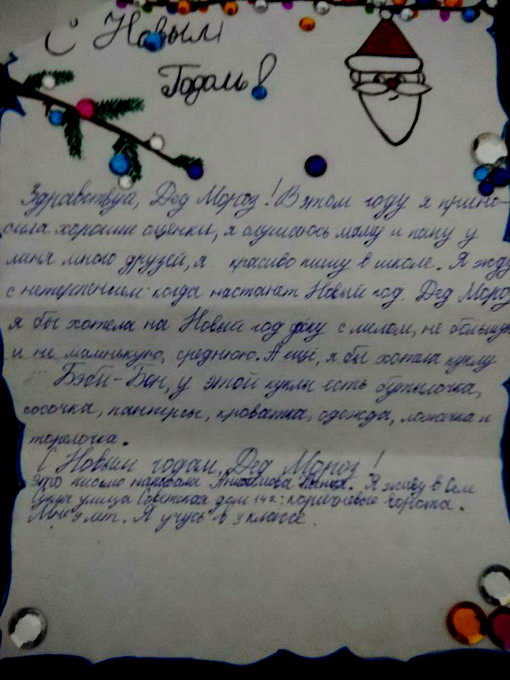 С Новым
Годом!
Здравствуй, Дед Мороз! В этом году я прино-
сила хорошие оценки, я слушаюсь маму и папу у
меня много друзей, я красиво пишу в школе. Я жду
с нетерпением когда настанет Новый год. Дед Мороз
я бы хотела на Новый год доску с мелом, не большую
и не маленькую, среднюю. А ещё, я бы хотела куклу
Бэби-Бон, у этой куклы есть бутылочка,
сосочка, памперсы, кроватка, одежда, ложечка и
торелочка.
С Новым годом, Дед Мороз!
Это письмо написала. Я живу в
улица Советская дом коричневые ворота.
Мне 9 лет. Я учусь в 3 классе.